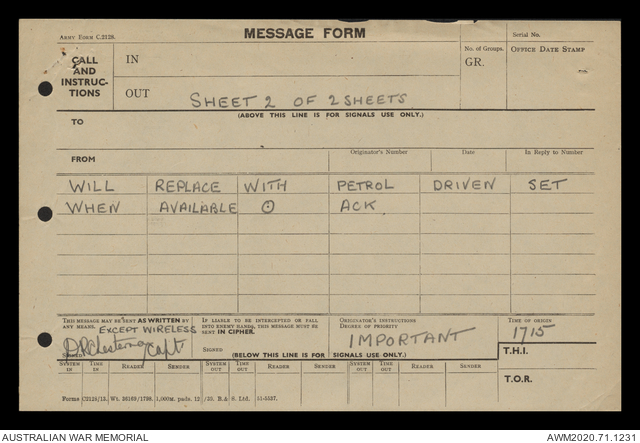 ARMY FORM C.2128.
MESSAGE FORM
Serial No.
CALL AND INSTRUC-TIONS
IN
No. of Groups.
GR.
OFFICE DATE STAMP
OUT
SHEET 2 OF 2 SHEETS
(ABOVE THIS LINE IS FOR SIGNALS USE ONLY.)
TO
FROM
Originator's Number
Date
In Reply to Number
WILL REPLACE WITH PETROL DRIVEN SET
WHEN AVAILABLE ⊙ ACK
THIS MESSAGE MAY BE SENT AS WRITTEN BY
ANY MEANS. EXCEPT WIRELESS
Capt
SIGNED
IF LIABLE TO BE INTERCEPTED OR FALL
INTO ENEMY HANDS, THIS MESSAGE MUST BE
SENT IN CIPHER.
SIGNED
ORIGINATOR'S INSTRUCTIONS
DEGREE OF PRIORITY
IMPORTANT
TIME OF ORIGIN
1715
(BELOW THIS LINE IS FOR SIGNALS USE ONLY.)
T.H.I.
SYSTEM IN TIME IN READER SENDER SYSTEM OUT TIME OUT READER SENDER SYSTEM OUT TIME OUT READER SENDER
T.O.R.
Forms C2128/13. Wt. 36169/1798. 1,000m. pads. 12/39. B.& S. Ltd. 51-5537.
AUSTRALIAN WAR MEMORIAL
AWM2020.71.1231